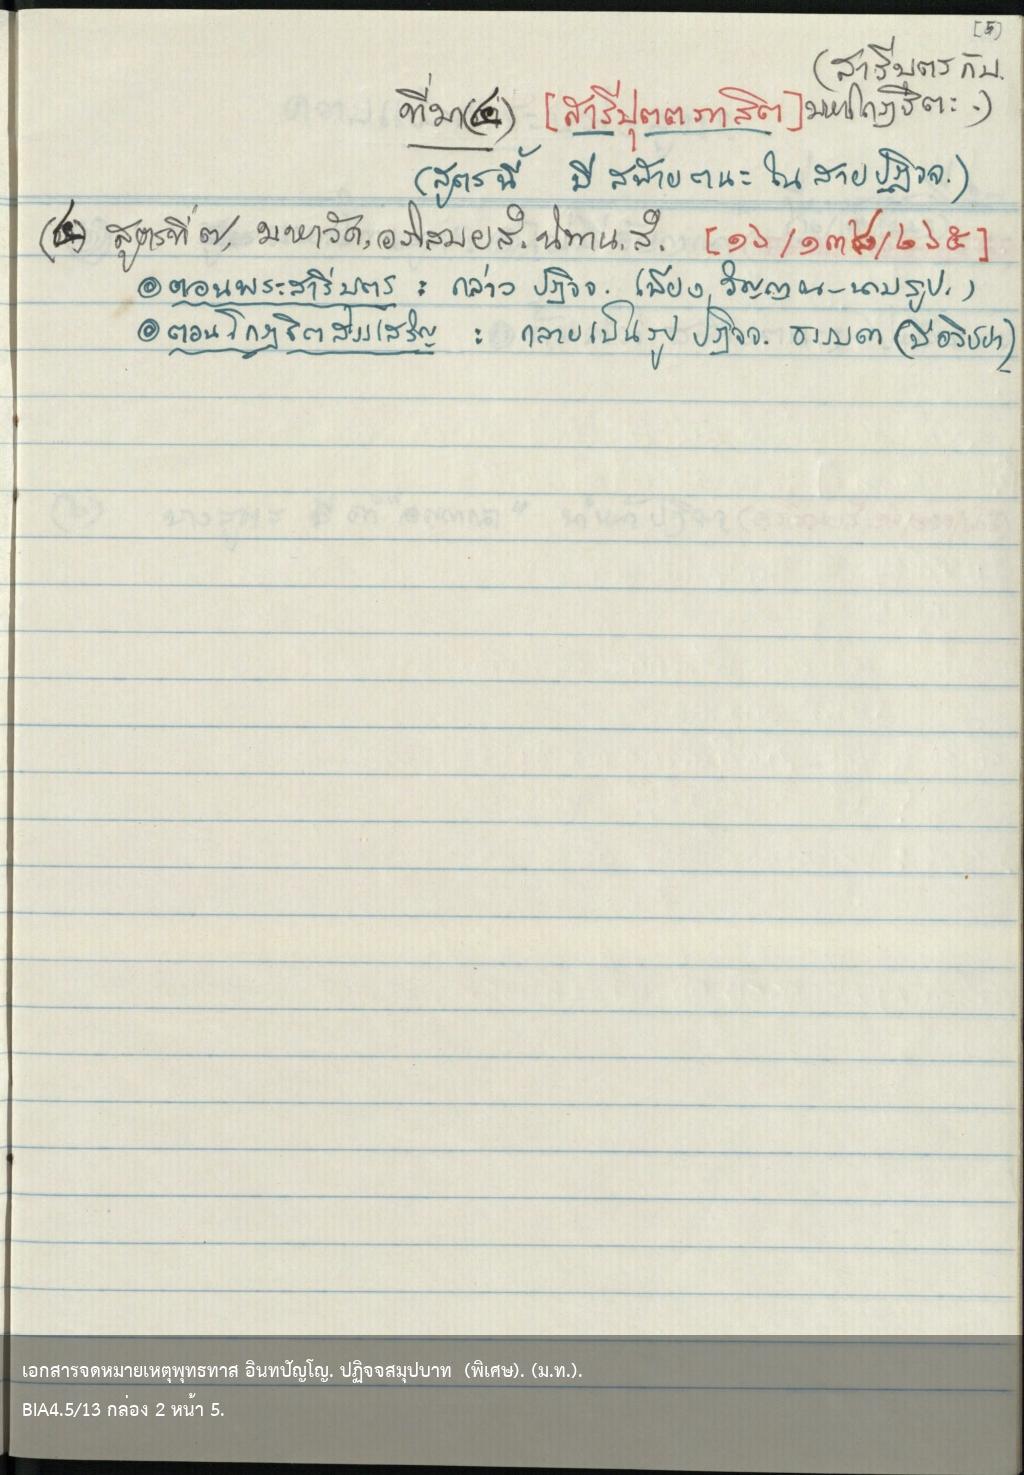 [5]
(สารีบุตร กับ
ที่มา(๔) [สารีปุตตภาสิต] มหาโกฏฐิตะ.)
(สูตรนี้ มี สฬายตนะ ใน สาย ปฏิจจ.)
(๔) สูตรที่ ๗, มหาวัค, อภิสมยสํ. นิทาน. สํ. [๑๖/๑๓๘/๒๖๕]
๏ ตอนพระสารีบุตร : กล่าว ปฏิจจ. เพียง วิญญาณ-นามรูป.,
๏ ตอนโกฏฐิตสรรเสริญ : กลายเป็นรูป ปฏิจจ. ธรรมดา (มีอวิชชา)
เอกสารจดหมายเหตุพุทธทาส อินทปัญโญ. ปฏิจจสมุปบาท (พิเศษ). (ม.ท.).
BIA4.5/13 กล่อง 2 หน้า 5.